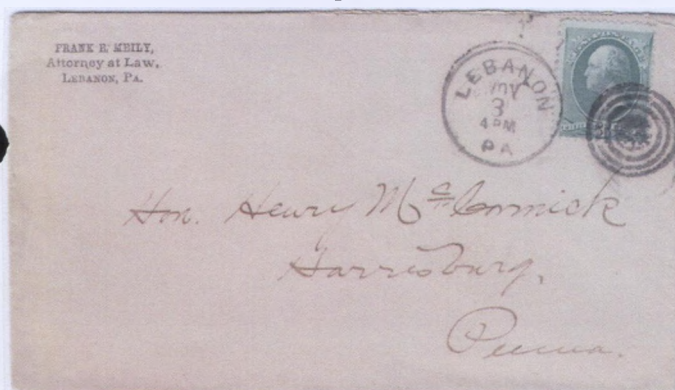 FRANK E. MEILY,
Attorney at Law,
LEBANON, PA.
LEBANON
NOV
3
4 PM
PA
Hon. Henry McCormick
Harrisburg,
Penna.